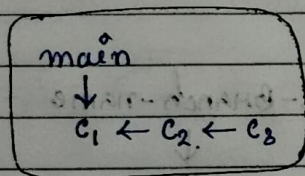 main
↓
C₁ ← C₂ ← C₃